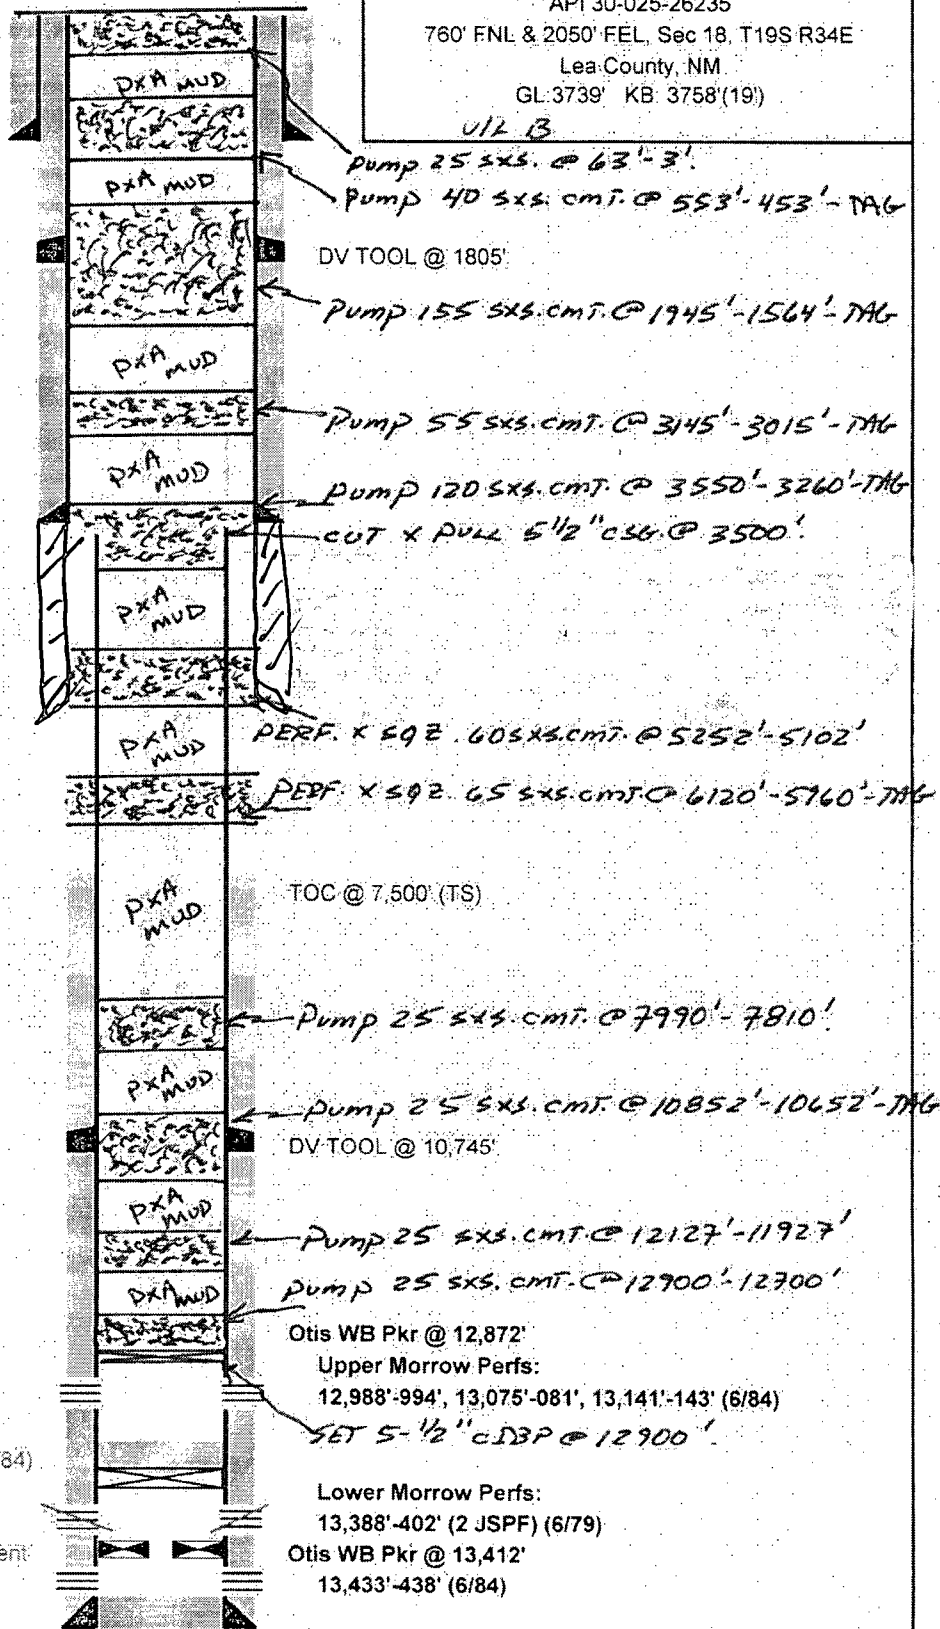 API 30-025-26235
760' FNL & 2050' FEL, Sec 18, T19S R34E
Lea County, NM
GL:3739' KB: 3758'(19')
U/L B
PXA MUD
Pump 25 sxs. @ 63'-3'.
Pump 40 sxs. cmt. @ 553'-453'-TAG
PXA MUD
DV TOOL @ 1805'
Pump 155 sxs. cmt. @ 1945'-1564'-TAG
PXA MUD
Pump 55 sxs. cmt. @ 3145'-3015'-TAG
PXA MUD
Pump 120 sxs. cmt. @ 3550'-3260'-TAG
CUT X PULL 5 1/2" CSG. @ 3500'.
PXA MUD
PERF. X SQZ. 60 sxs. cmt. @ 5252'-5102'
PXA MUD
PERF. X SQZ. 65 sxs. cmt. @ 6120'-5960'-TAG
TOC @ 7,500' (TS)
PXA MUD
Pump 25 sxs. cmt. @ 7990'-7810'.
PXA MUD
Pump 25 sxs. cmt. @ 10852'-10652'-TAG
DV TOOL @ 10,745'
PXA MUD
Pump 25 sxs. cmt. @ 12127'-11927'
PXA MUD
Pump 25 sxs. cmt. @ 12900'-12700'
Otis WB Pkr @ 12,872'
Upper Morrow Perfs:
12,988'-994', 13,075'-081', 13,141'-143' (6/84)
SET 5-1/2" CIBP @ 12900'.
84)
Lower Morrow Perfs:
13,388'-402' (2 JSPF) (6/79)
Otis WB Pkr @ 13,412'
ent
13,433'-438' (6/84)